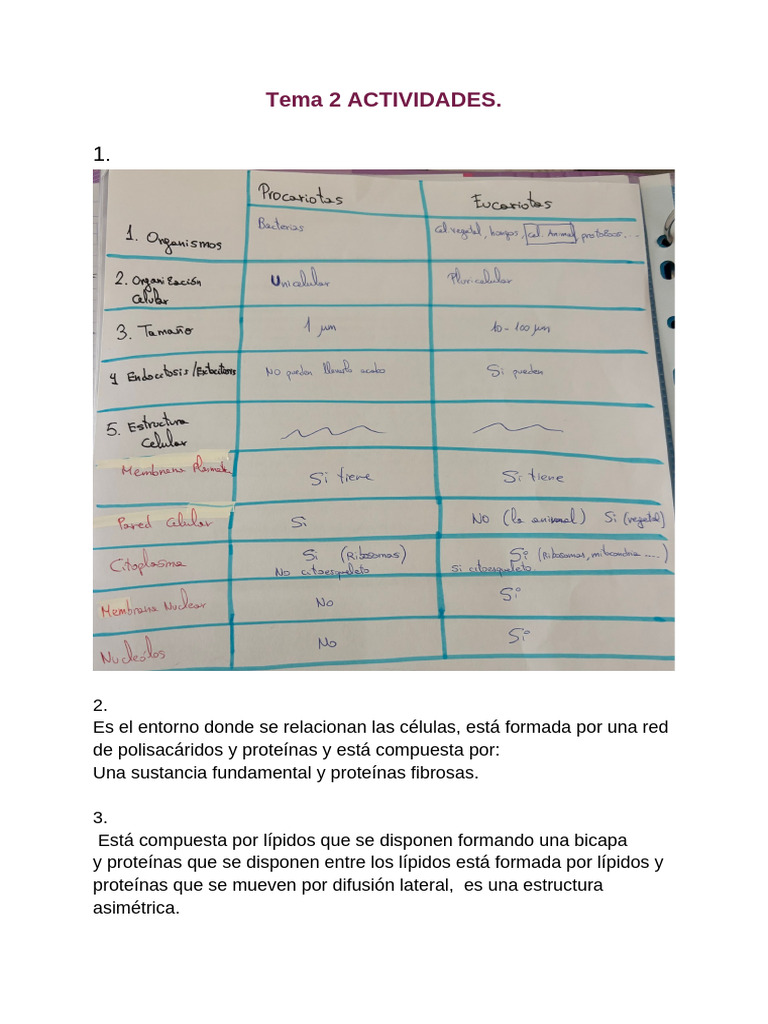 Tema 2 ACTIVIDADES.
1.
Procariotas Eucariotas
1. Organismos Bacterias Cel.vegetal, hongos, cel. Animal, protozoos....
2. Organización Celular Unicelular Pluricelular
3. Tamaño 1 µm 10-100 µm
4 Endocitosis/Exocitosis No pueden llevarlo acabo Si pueden
5. Estructura Celular
Membrana Si tiene Si tiene
Pared Celular Si NO (la animal) Si (vegetal)
Citoplasma Si (Ribosomas) Si (Ribosomas, mitocondria ....)
No citoesqueleto Si citoesqueleto.
Membrana Nuclear No Si
Nucleólos No Si
2.
Es el entorno donde se relacionan las células, está formada por una red
de polisacáridos y proteínas y está compuesta por:
Una sustancia fundamental y proteínas fibrosas.
3.
Está compuesta por lípidos que se disponen formando una bicapa
y proteínas que se disponen entre los lípidos está formada por lípidos y
proteínas que se mueven por difusión lateral, es una estructura
asimétrica.